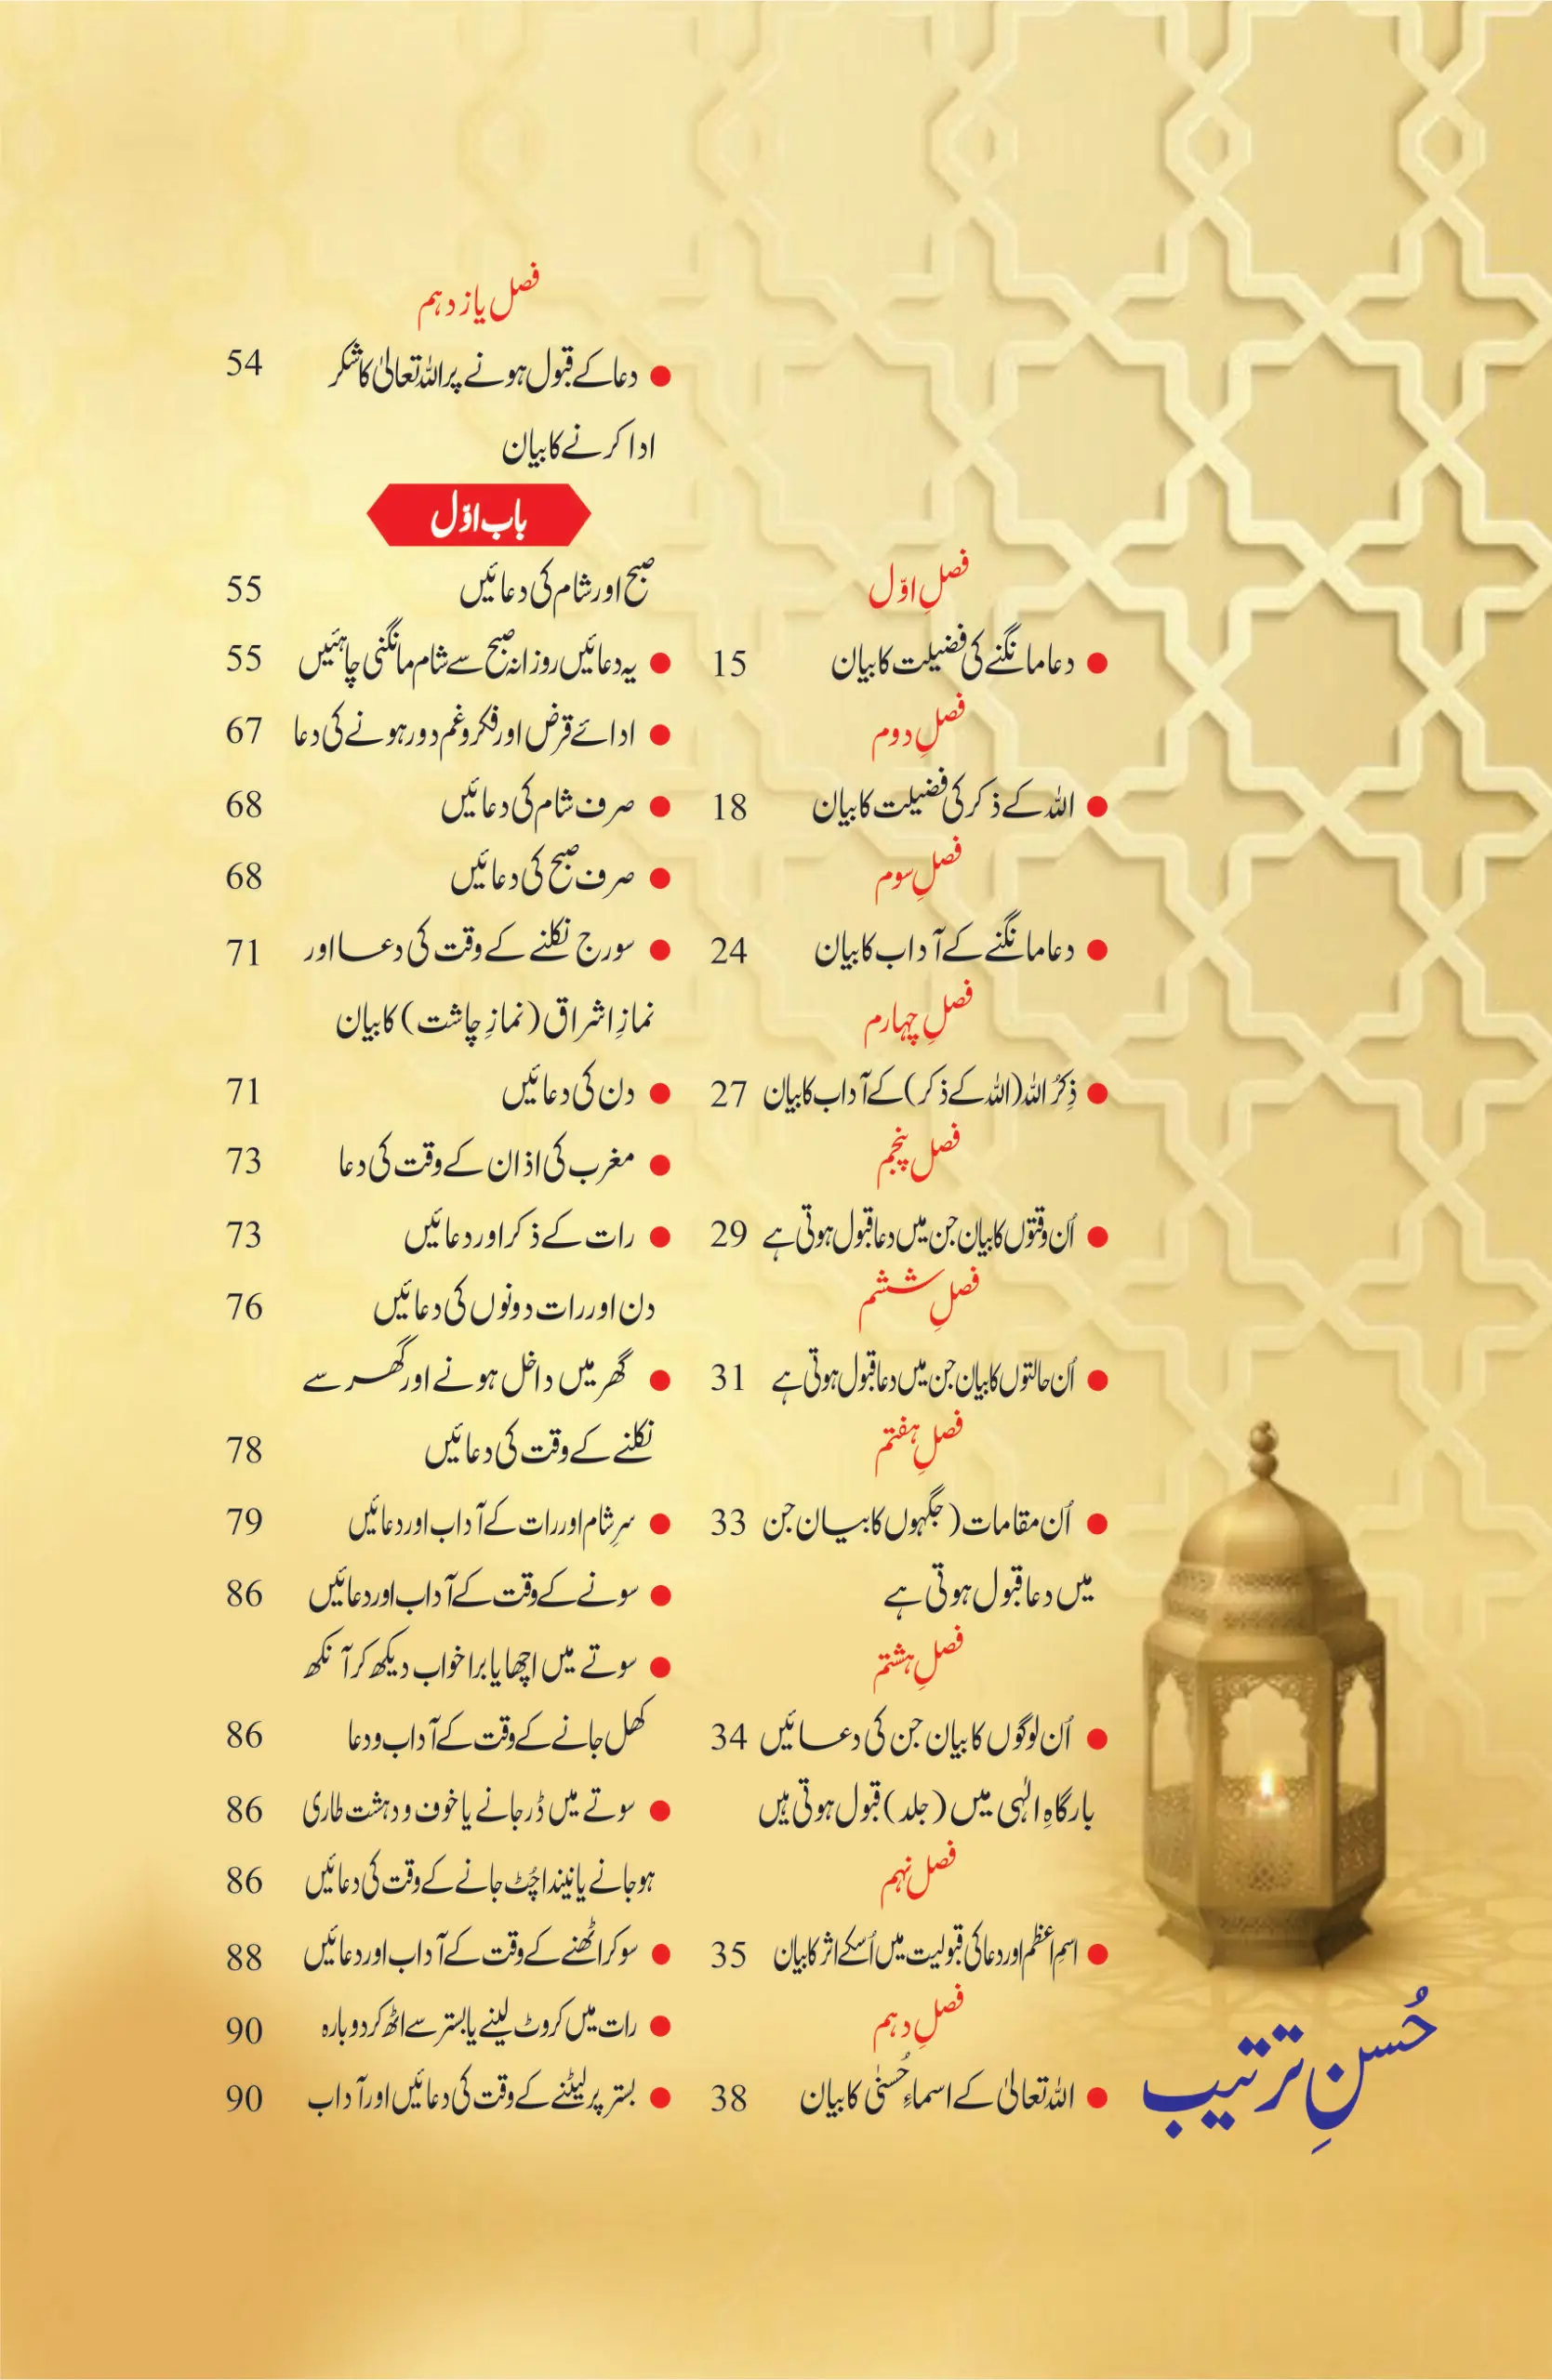 حُسنِ ترتیب
فصلِ اوّل
● دعا مانگنے کی فضیلت کا بیان 15
فصلِ دوم
● اللہ کے ذکر کی فضیلت کا بیان 18
فصلِ سوم
● دعا مانگنے کے آداب کا بیان 24
فصلِ چہارم
● ذِکرُ اللہ (اللہ کے ذکر) کے آداب کا بیان 27
فصل پنجم
● اُن وقتوں کا بیان جن میں دعا قبول ہوتی ہے 29
فصلِ ششم
● اُن حالتوں کا بیان جن میں دعا قبول ہوتی ہے 31
فصلِ ہفتم
● اُن مقامات (جگہوں کا بیان جن 33
میں دعا قبول ہوتی ہے
فصلِ ہشتم
● اُن لوگوں کا بیان جن کی دعائیں 34
بارگاہِ الٰہی میں (جلد) قبول ہوتی ہیں
فصل نہم
● اسمِ اعظم اور دعا کی قبولیت میں اُسکے اثر کا بیان 35
فصلِ دہم
● اللہ تعالیٰ کے اسماءِ حُسنٰی کا بیان 38
فصل یازدہم
● دعا کے قبول ہونے پر اللہ تعالیٰ کا شکر 54
ادا کرنے کا بیان
باب اوّل
صبح اور شام کی دعائیں 55
● یہ دعائیں روزانہ صبح سے شام مانگنی چاہئیں 55
● ادائے قرض اور فکر و غم دور ہونے کی دعا 67
● صرف شام کی دعائیں 68
● صرف صبح کی دعائیں 68
● سورج نکلنے کے وقت کی دعا اور 71
نمازِ اشراق (نمازِ چاشت) کا بیان
● دن کی دعائیں 71
● مغرب کی اذان کے وقت کی دعا 73
● رات کے ذکر اور دعائیں 73
دن اور رات دونوں کی دعائیں 76
● گھر میں داخل ہونے اور گھر سے
نکلنے کے وقت کی دعائیں 78
● سرِ شام اور رات کے آداب اور دعائیں 79
● سونے کے وقت کے آداب اور دعائیں 86
● سوتے میں اچھا یا برا خواب دیکھ کر آنکھ
کھل جانے کے وقت کے آداب و دعا 86
● سوتے میں ڈر جانے یا خوف و دہشت طاری 86
ہو جانے یا نیند اچُٹ جانے کے وقت کی دعائیں 86
● سو کر اٹھنے کے وقت کے آداب اور دعائیں 88
● رات میں کروٹ لینے یا بستر سے اٹھ کر دوبارہ 90
● بستر پر لیٹنے کے وقت کی دعائیں اور آداب 90